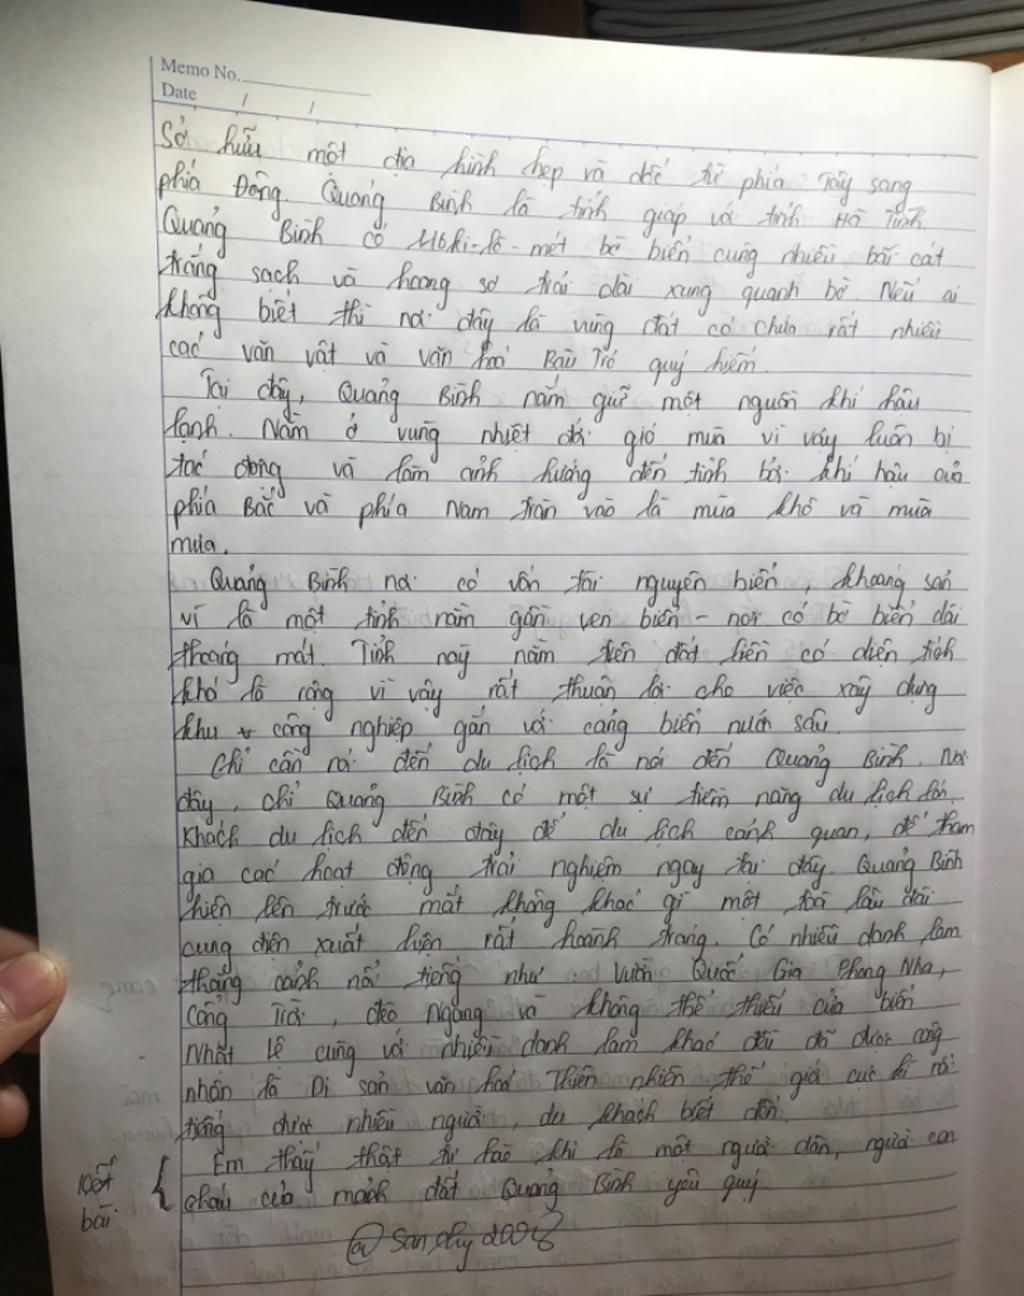 Memo No.
Date / /
Sở hữu một địa hình hẹp và dốc từ phía Tây sang
phía Đông. Quảng Bình là tỉnh giáp với tỉnh Hà Tĩnh.
Quảng Bình có 116 ki-lô-mét bờ biển cùng nhiều bãi cát
trắng sạch và hoang sơ trải dài xung quanh bờ. Nếu ai
không biết thì nơi đây là vùng đất có chứa rất nhiều
các văn vật và văn hoá Bàu Tró quý hiếm.
Tại đây, Quảng Bình nắm giữ một nguồn khí hậu
lạnh. Nằm ở vùng nhiệt đới gió mùa vì vậy luôn bị
tác động và làm ảnh hưởng đến tỉnh bởi khí hậu của
phía Bắc và phía Nam tràn vào là mùa khô và mùa
mưa.
Quảng Bình nơi có vốn tài nguyên biển, khoáng sản
vì là một tỉnh nằm gần ven biển - nơi có bờ biển dài
thoáng mát. Tỉnh này nằm trên đất liền có diện tích
khá là rộng vì vậy rất thuận lợi cho việc xây dựng
khu công nghiệp gắn với cảng biển nước sâu.
Chỉ cần nói đến du lịch là nói đến Quảng Bình. Nơi
đây, chỉ Quảng Bình có một sự tiềm năng du lịch lớn.
Khách du lịch đến đây để du lịch cảnh quan, để tham
gia các hoạt động trải nghiệm ngay tại đây. Quảng Bình
hiện lên trước mắt không khác gì một toà lâu đài
cung điện xuất hiện rất hoành tráng. Có nhiều danh lam
thắng cảnh nổi tiếng như Vườn Quốc Gia Phong Nha,
Cổng Trời, đèo Ngang và không thể thiếu của biển
Nhật Lệ cùng với nhiều danh lam khác đều đã được công
nhận là Di sản văn hoá Thiên nhiên thế giới cực kì nổi
tiếng được nhiều người, du khách biết đến.
Em thấy thật tự hào khi là một người dân, người con
cháu của mảnh đất Quảng Bình yêu quý.
kết
bài